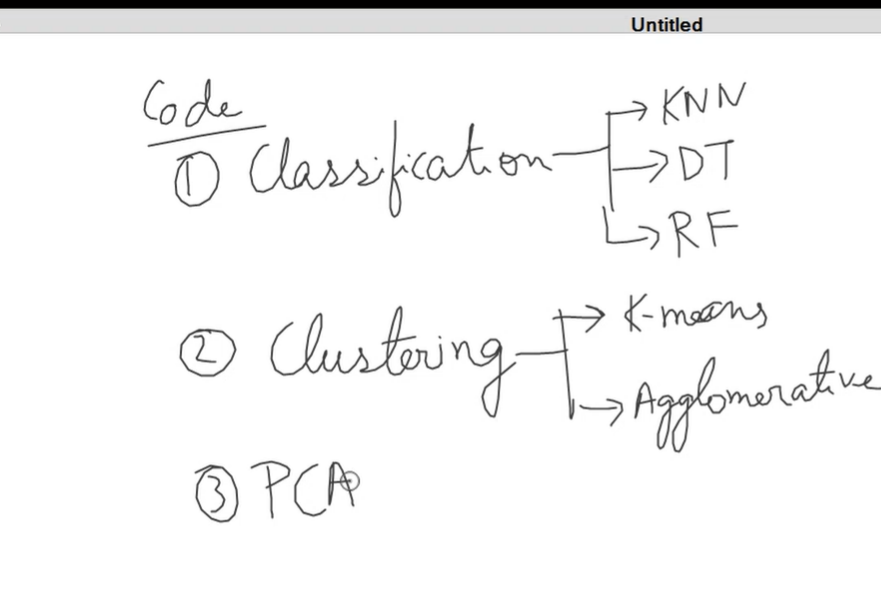 Untitled
Code
① Classification → KNN
→ DT
→ RF
② Clustering → K-means
→ Agglomerative
③ PCA